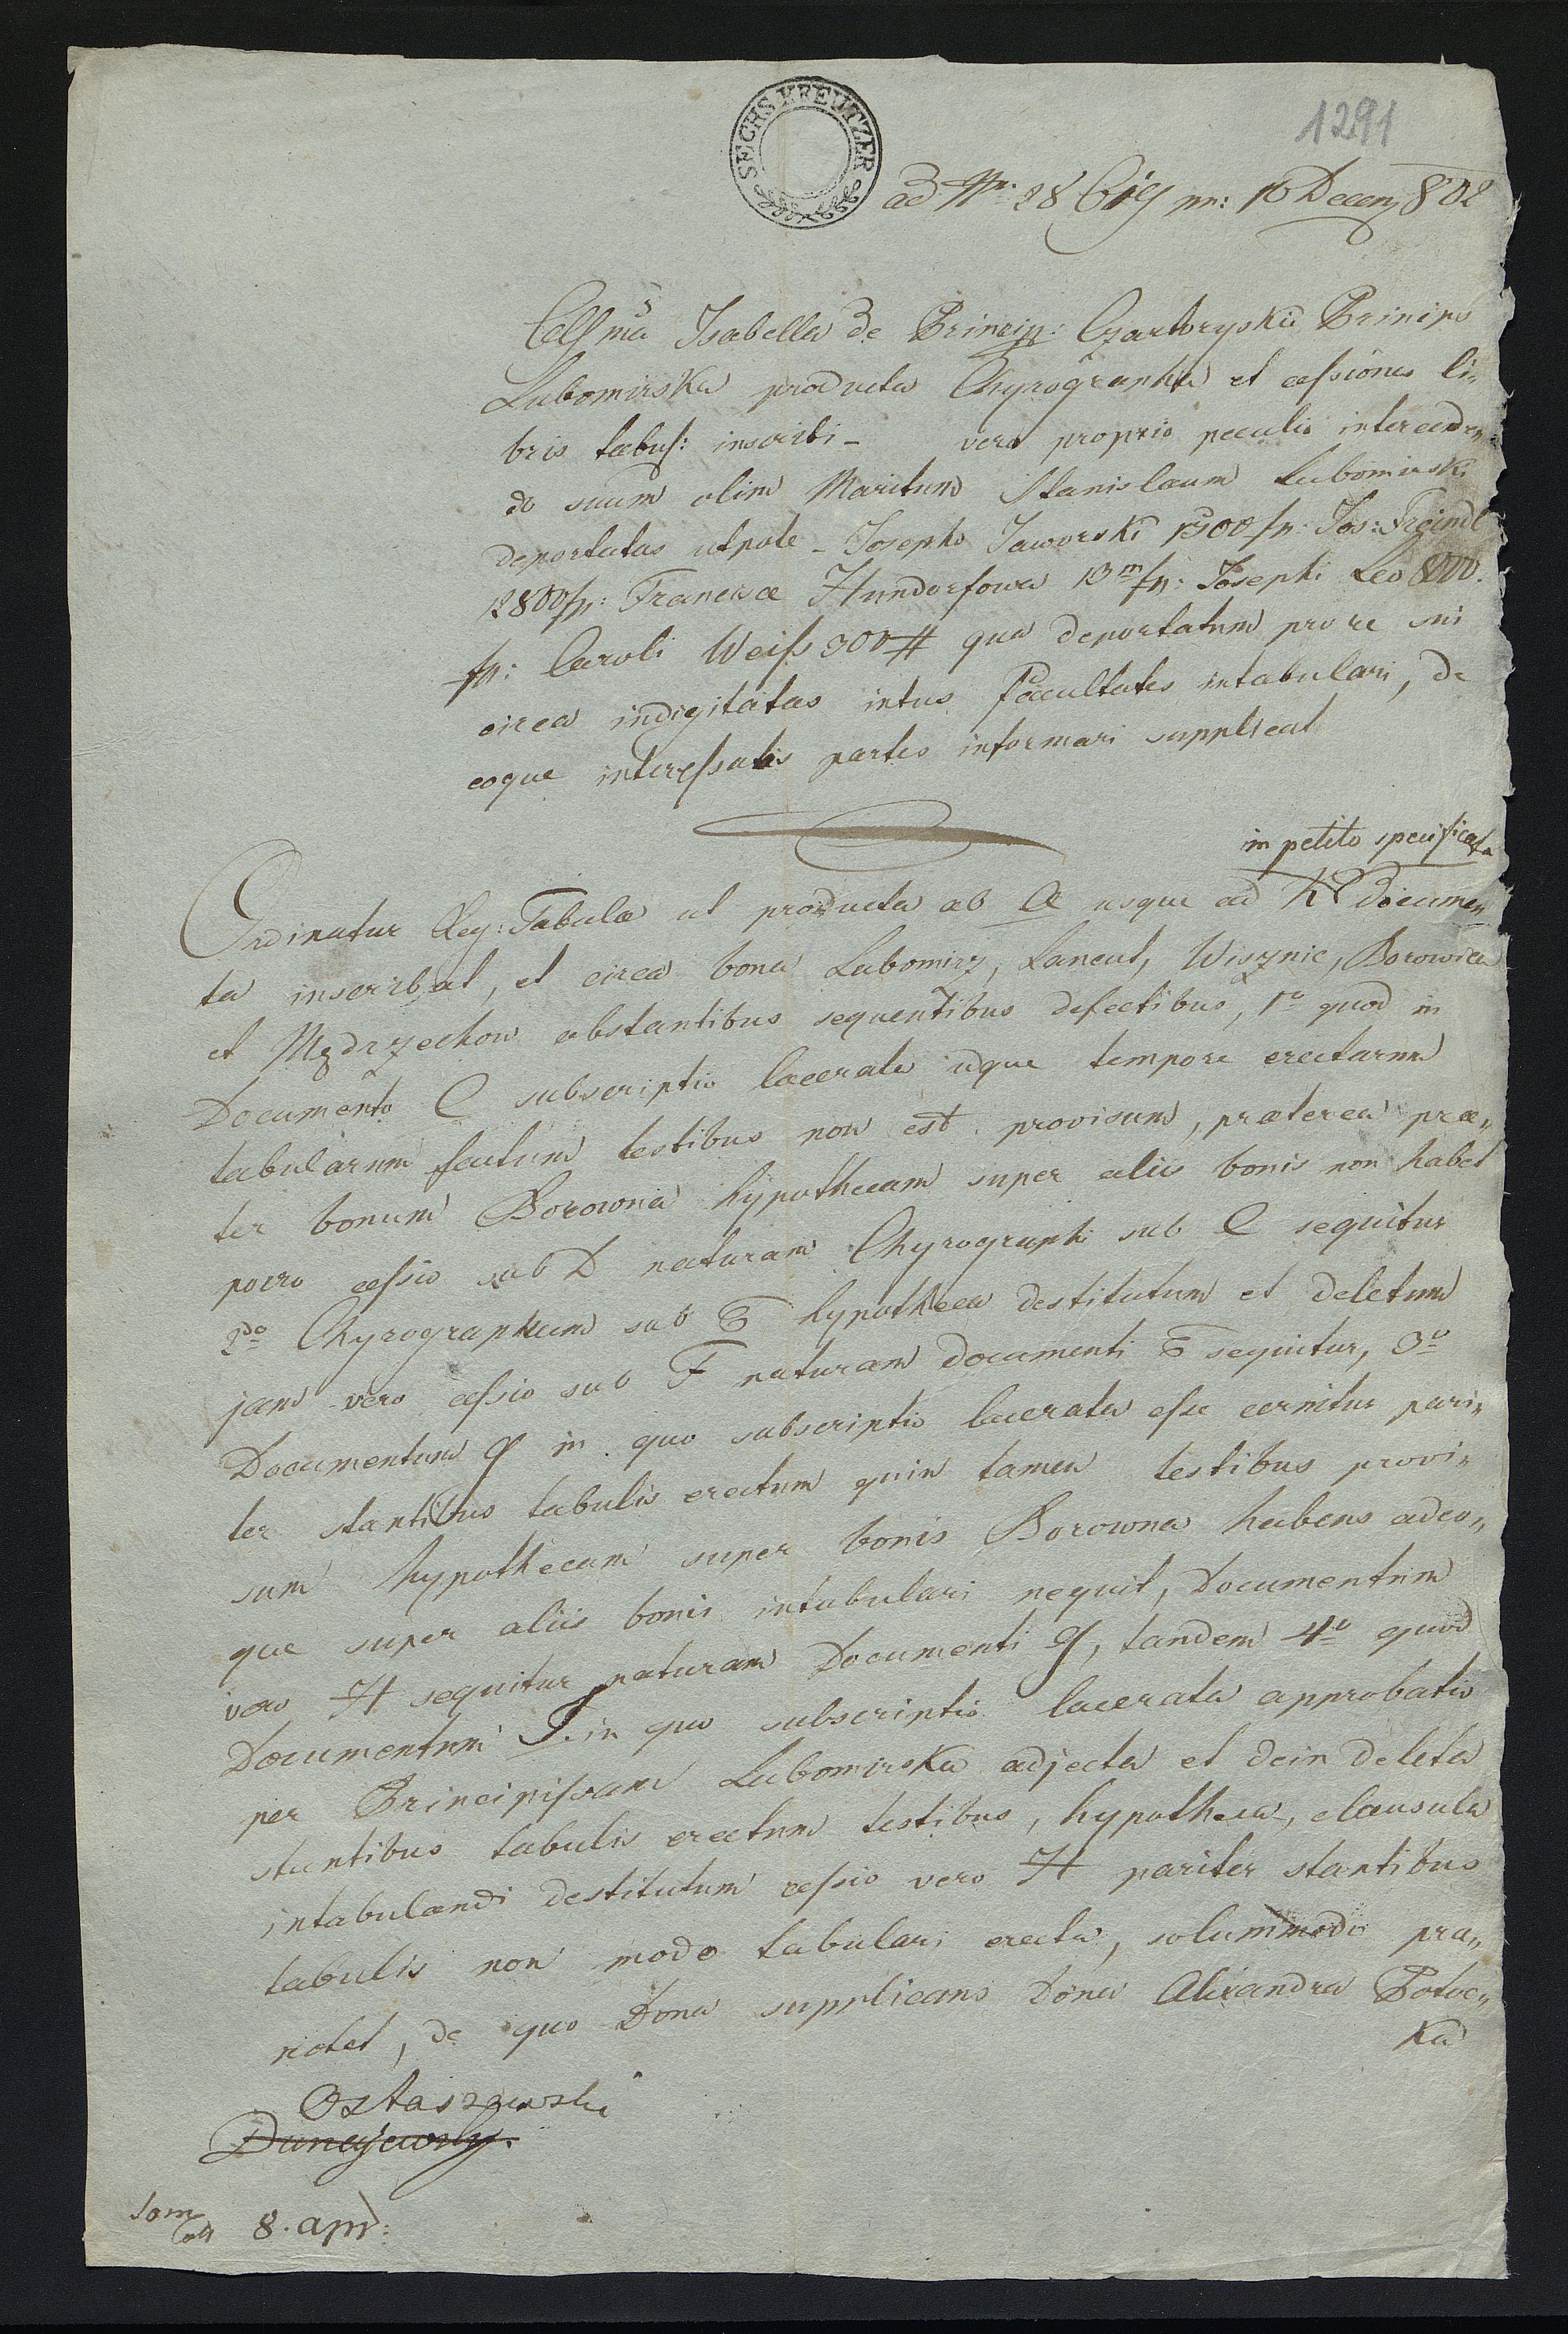 1291
SECHS KREUTZER
ad Nr. 28 619 pr: 10 Decem 802
Celsma Isabella de Princip: Czartoryskie Princips
Lubomirska producta Chyrographa et cessiones li„
bris tabul: inscribi_ vero proprio peculio interceden„
do suum olim Maritum Stanislaum Lubomirski
deportatas utpote _ Josepho Jaworski 1500 fp. Jos:
12800 fp: Francisca Hundorfowa 13m fp: Josephi Leo 8000.
fp: Caroli Weiss 300 # qua deportatum pro re sui
circa indigitatas intus facultates intabulari, de
eoque interessatas partes informari supplicat
in petito specificata
Ordinatur Reg: Tabulæ ut producta ab A usque ad K documen
ta inscribat, et circa bona Lubomirz, Lancut, Wisznic, Borowica
et Mędrzechow obstantibus sequentibus defectibus, 1o quod in
Documento C subscriptio lacerata idque tempore erectarum
tabularum factum testibus non est provisum, præterea præ„
ter bonum Borowna hypothecam super aliis bonis non habet
porro cessio sub D naturam Chyrographi sub C sequitur
2do Chyrographum sub E hypotheca destitutum et deletum
jam vero cessio sub F naturam documenti E sequitur, 3o
Documentum G in quo subscriptio lacerata esse cernitur pari„
ter stantibus tabulis erectum quin tamen testibus provi„
sum hypothecam super bonis Borowna habens adeo„
que super aliis bonis intabulari nequit, Documentum
vero H sequitur naturam Documenti G, tandem 4o quod
Documentum J. in quo subscriptio lacerata approbatio
per Principissam Lubomirska adjecta et dein deleta
stantibus tabulis erectum testibus, hypotheca, clausula
intabulandi destitutum cessio vero H pariter stantibus
tabulis non modo tabulari erecta, solummodo præ„
notet, de quo Dona supplicans Dona Alexandra Potoc„
ka
Ostaszewski
Dunajewsky.
8. apr: